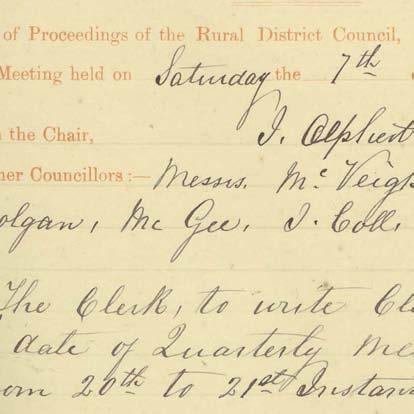 of Proceedings of the Rural District Council,
Meeting held on Saturday the 7th
the Chair, J. Olphert
her Councillors :— Messrs. Mc Veigh
olgan, Mc Gee, J. Coll,
The Clerk, to write
date of Quarterly Me
om 20th to 21st Instan